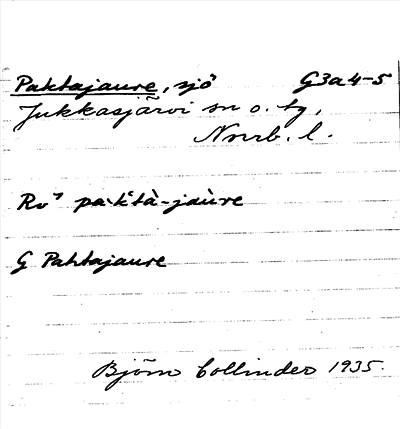 Paktajaure, sjö G3a4-5
Jukkasjärvi sn o. tg,
Norrb. l.
pa·k̀tà-jaùre
G Pahtajaure
Björn Collinder 1935.